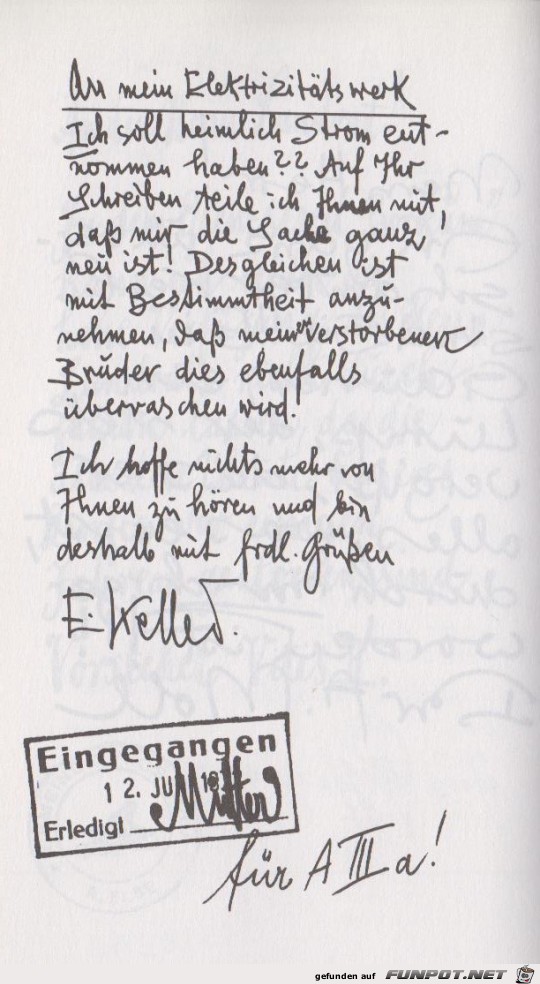 An mein Elektrizitätswerk
Ich soll heimlich Strom ent-
nommen haben?? Auf Ihr
Schreiben teile ich Ihnen mit,
daß mir die Sache ganz
neu ist! Desgleichen ist
mit Bestimmtheit anzu-
nehmen, daß mein verstorbener
Bruder dies ebenfalls
überraschen wird!
Ich hoffe nichts mehr von
Ihnen zu hören und bin
deshalb mit frdl. Grüßen
E. Keller.
Eingegangen
12. JU
Erledigt
für A III a!
gefunden auf FUNPOT.NET